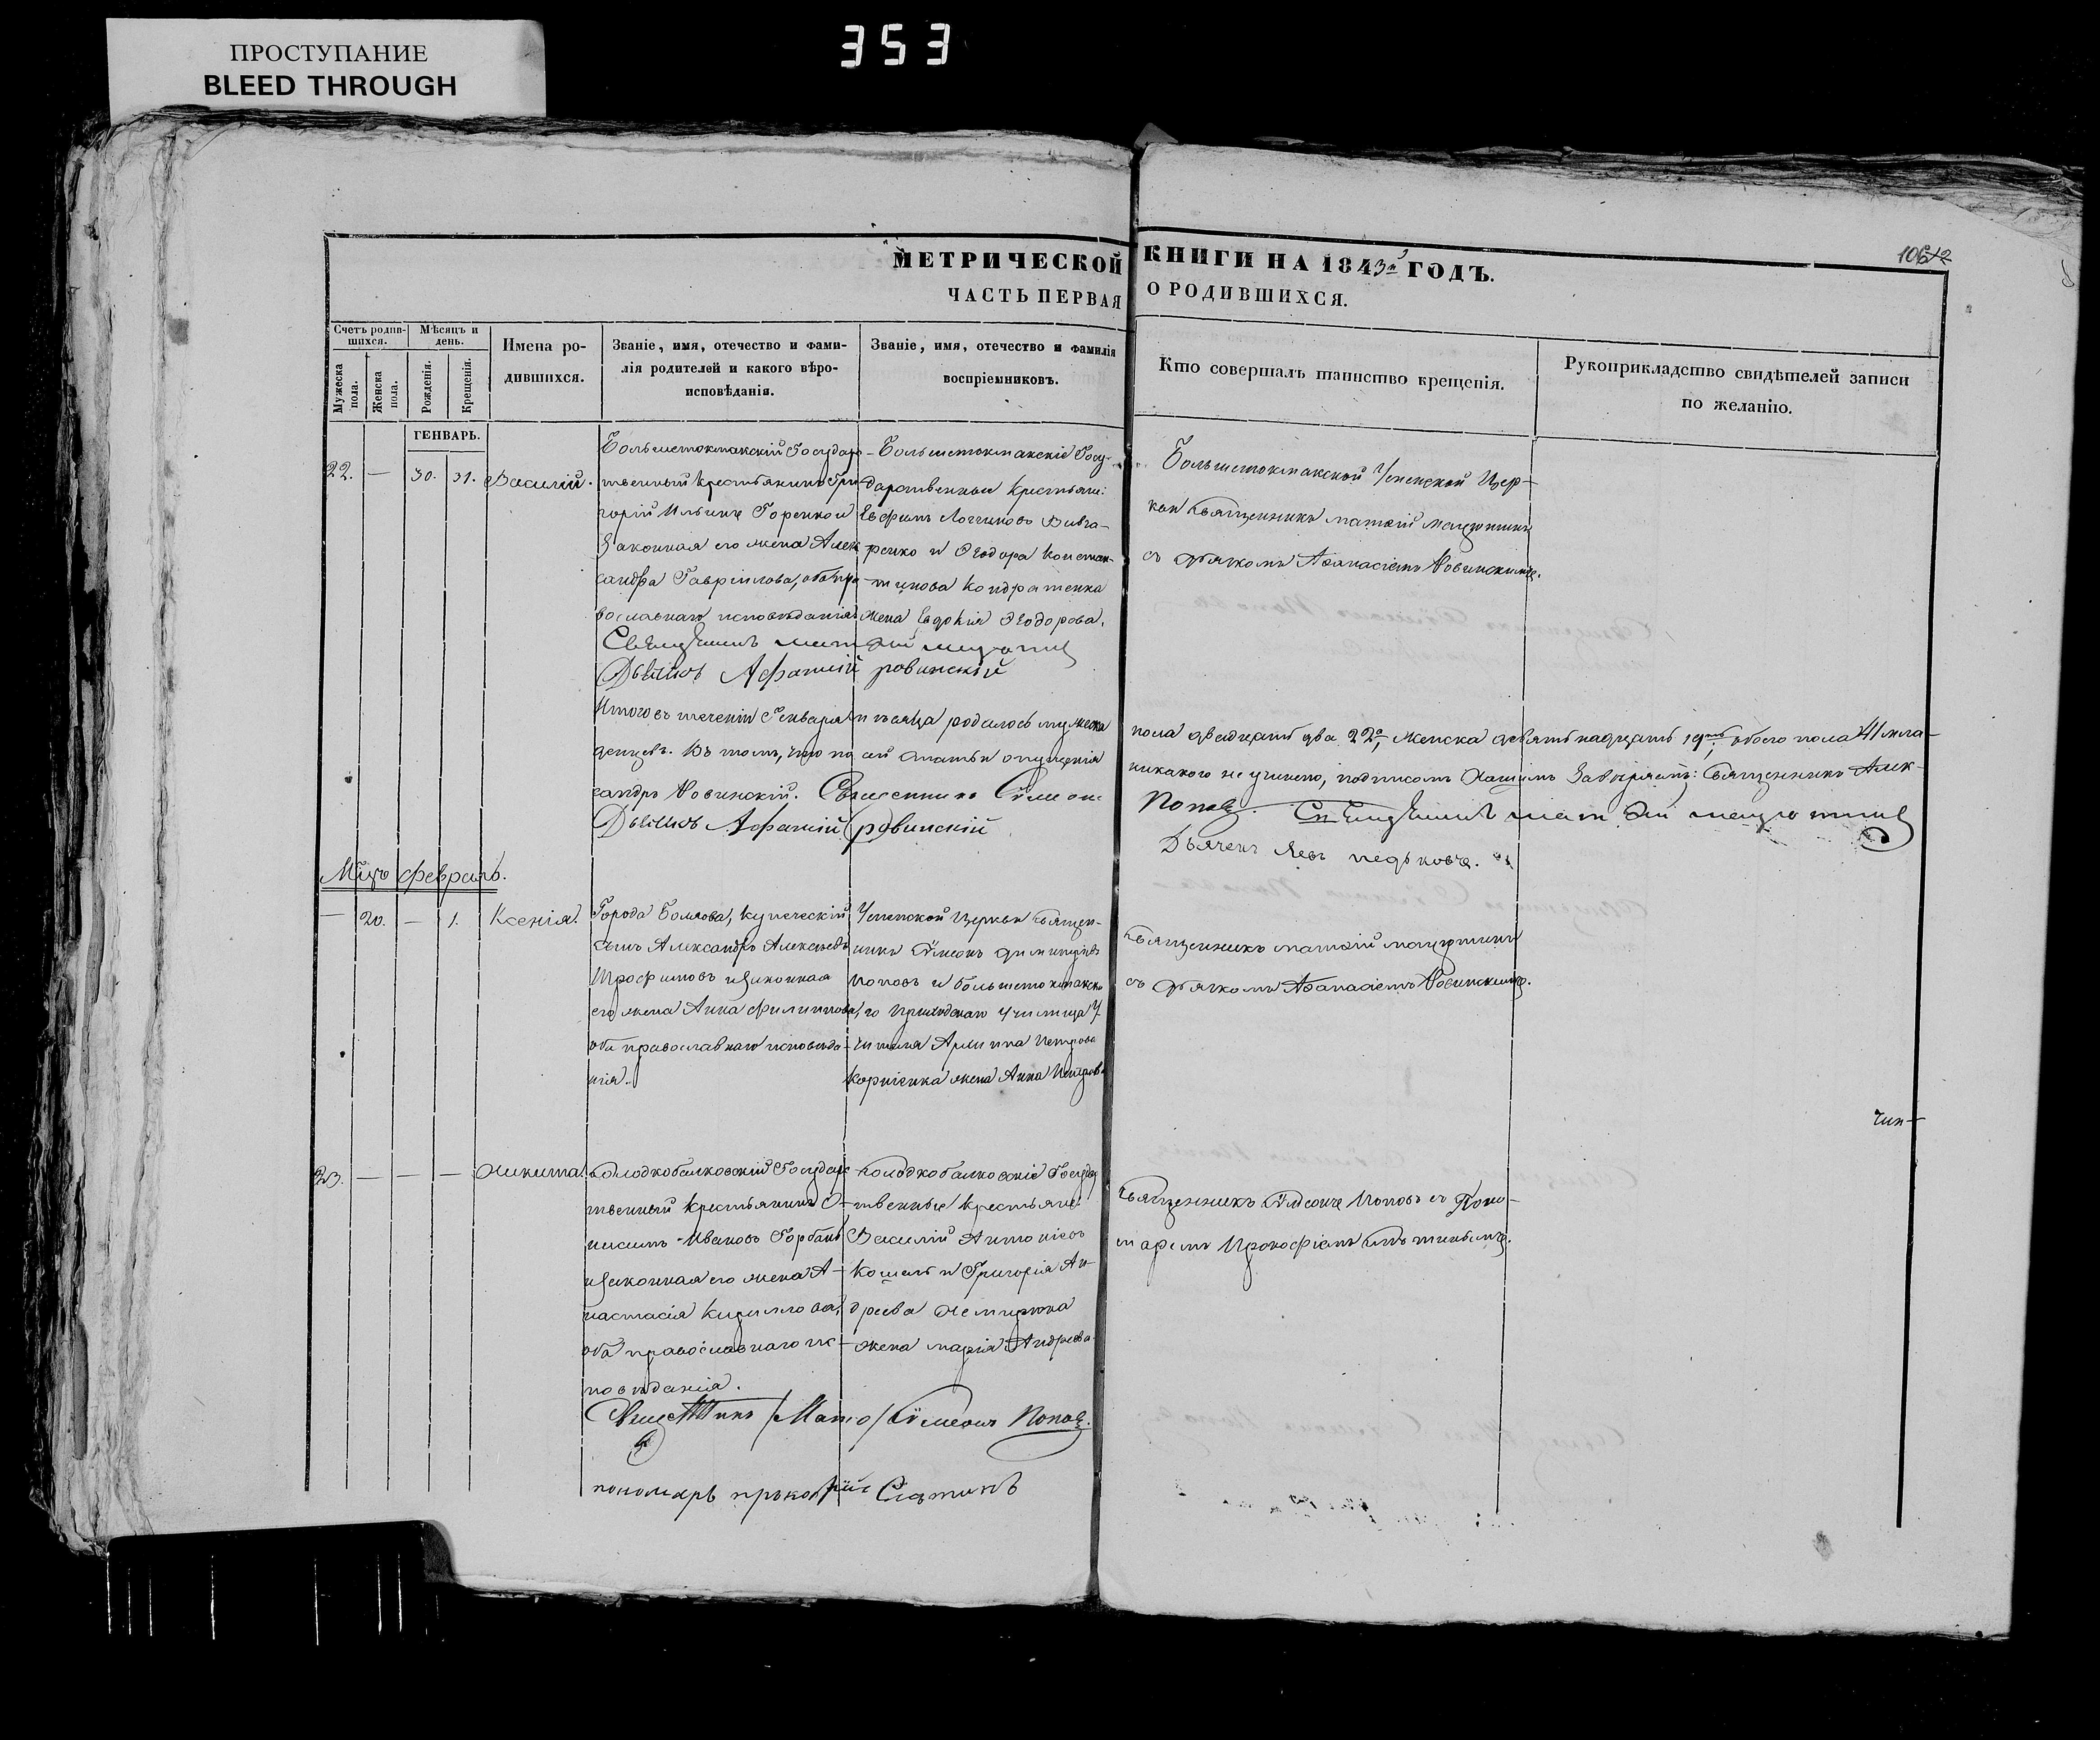 ПРОСТУПАНИЕ
BLEED THROUGH
353
МЕТРИЧЕСКОЙ КНИГИ НА 1843й ГОДЪ.
106
ЧАСТЬ ПЕРВАЯ О РОДИВШИХСЯ.
Счетъ родив-
шихся.
Мужеска пола.
Женска пола.
Мѣсяцъ и
день.
Рожденія.
Крещенія.
Имена ро-
дившихся.
Званіе, имя, отечество и фами-
лія родителей и какого вѣро-
исповѣданія.
Званіе, имя, отечество и фамилія
воспріемниковъ.
Кто совершалъ таинство крещенія.
Рукоприкладство свидѣтелей записи
по желанію.
ГЕНВАРЬ.
22. — 30. 31. Василій.
Большетокмакскій Государ-
твенный Крестьянинъ Гри-
горій Ильинъ Горенко и
Законная его жена Алек-
сандра Гавріилова, оба пра-
вославнаго исповѣданія
Большетокмакскіе Госу-
дарственные Крестьяне:
Евфимъ Логгиновъ Вивча-
ренко и Ѳеодора Констан-
тинова Кондратенка
жена Евдокія Ѳеодорова.
Большетокмакской Успенской Цер-
кви Священникъ Матѳій Мацютинъ
съ дьячкомъ Аѳанасіемъ Ровинскимъ.
Священникъ Матѳій Мацютинъ
Дьячокъ Афанасій Ровинскій
Итого въ теченіи Генваря мѣсяца родилось мужеска пола двадцать два 22а, женска девятьнадцать 19ть обоего пола 41 мла-
денцевъ. Въ томъ, что по сей статьи опущенія никакого не учинено, подписомъ нашимъ Завѣряемъ: Священникъ Алек-
сандръ Ровинскій. Священникъ Сѵмеонъ Поповъ. Священникъ Матѳій Мацютинъ
Дьячокъ Афанасій Ровинскій
Дьячекъ Левъ
Мцъ Февраль.
— 20. — 1. Ксенія.
Города Болхова, купеческій
сынъ Александръ Алексѣевъ
Трофимовъ и Законная
его жена Анна Филиппова,
оба православнаго исповѣда-
нія.
Успенской Церкви Священ-
никъ Сѵмеонъ Димитріевъ
Поповъ и Большетокмакска-
го Приходскаго Училища У-
чителя Петрова
Корніенка жена Анна Петрова
Священникъ Матѳій Мацютинъ
съ дьячкомъ Аѳанасіемъ Ровинскимъ.
Чин-
23. — — — Никита.
Солодкобалковскій Государс-
твенный Крестьянинъ О-
нисимъ Ивановъ Горбань
и Законная его жена А-
настасія Кириллова,
оба православнаго ис-
повѣданія.
Солодкобалковскіе Государс-
твенные Крестьяне
Василій Антоніевъ
Кошель и Григорія Ан-
дреева Чемирюка
жена Марія Андреева.
Священникъ Сѵмеонъ Поповъ съ Поно-
маремъ Прокофіемъ
Священникъ Сѵмеонъ Поповъ.
пономарь